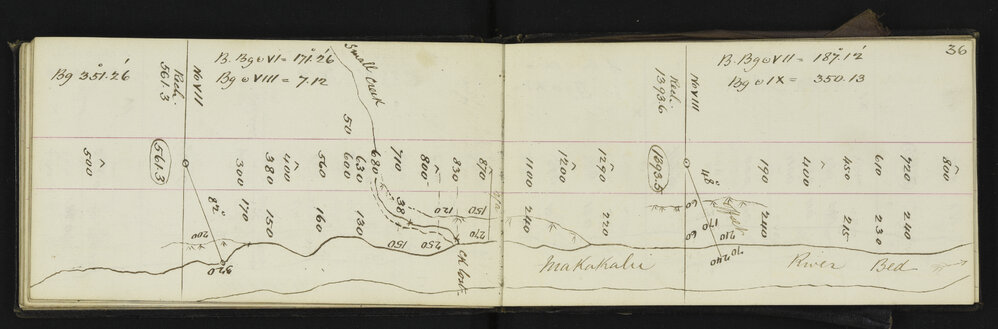 36
Bg 351.26'
Rect.
561.3
No VII
B. Bg @ VI = 171.26'
Bg @ VIII = 7.12
Small Creek
50
Rect.
1393.6
No VIII
B. Bg @ VII = 187.12'
Bg @ IX = 350.13
500
561.3
300
380
400
560
600
630
680
710
800
830
870
1100
1200
1290
1393.5
190
400
450
610
720
800
82°
200
920
170
150
160
130
38
150
120
250
150
270
240
220
48°
60
60
170
210
70
240
240
215
230
240
Makakahi River Bed